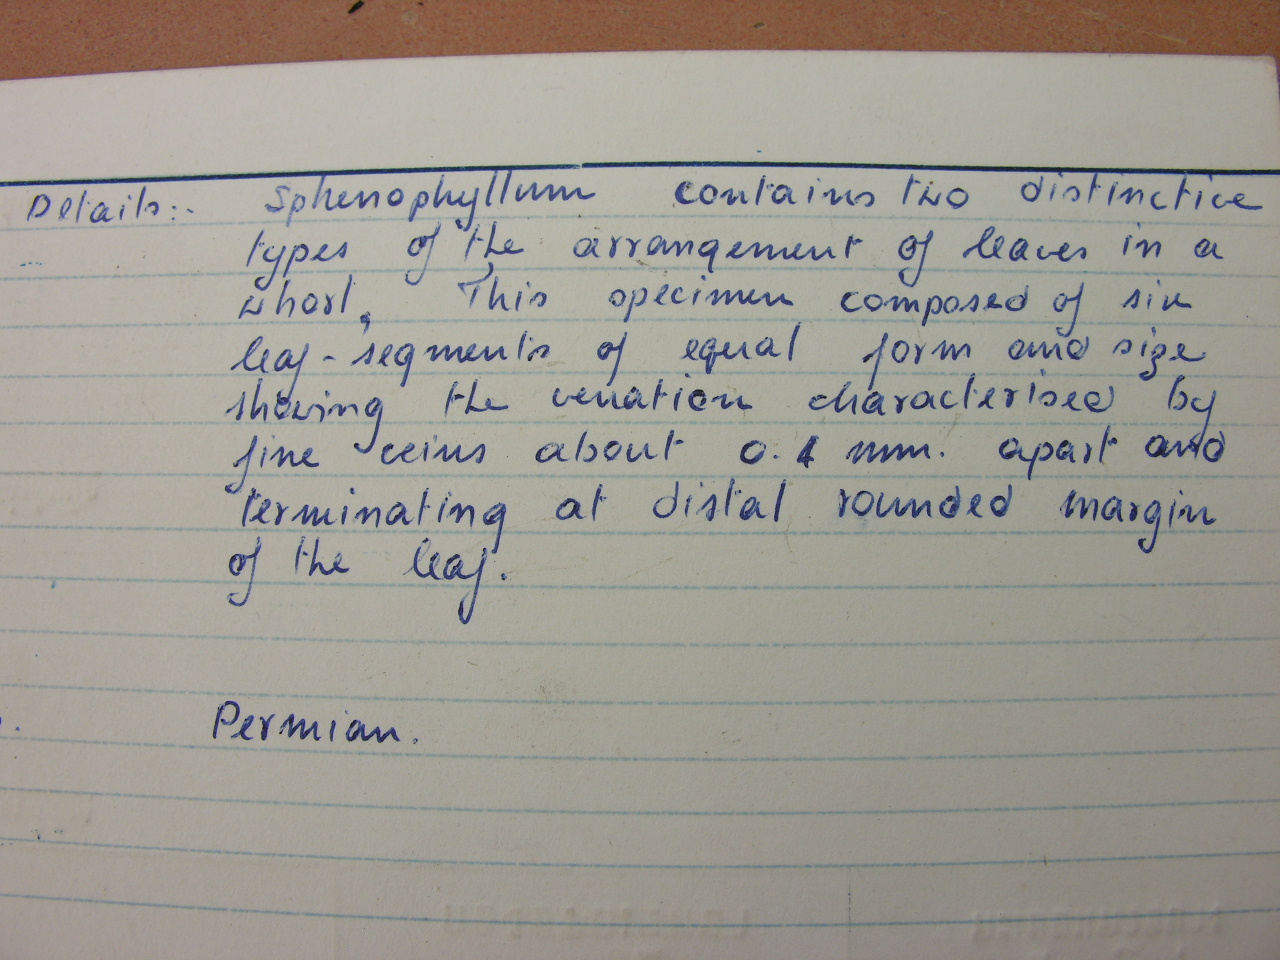 Details:- Sphenophyllum contains two distinctive
types of the arrangement of leaves in a
whorl, This specimen composed of six
leaf-segments of equal form and size
showing the venation characterised by
fine veins about 0.1 mm. apart and
terminating at distal rounded margin
of the leaf.
Permian.